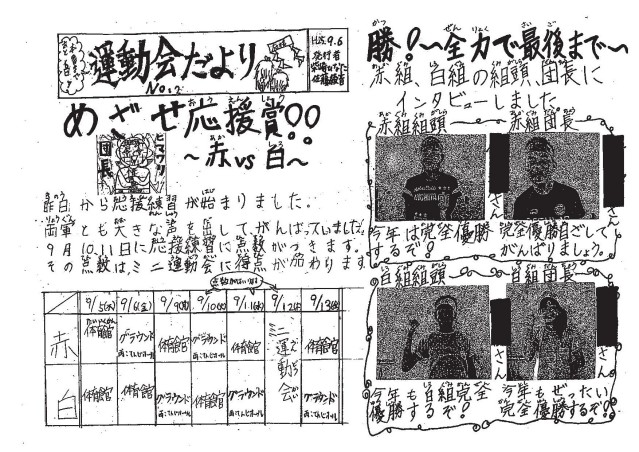 運動会だより
No.2
H25.9.6
めざせ応援賞!!
〜赤vs白〜
団長
ヒマワリ
昨日から応援練習が始まりました。
両軍とも大きな声を出して、がんばっていました。
9月10、11日に応援練習に点数がつきます。
その点数はミニ運動会に得点が加わります
9/5(木) 9/6(金) 9/9(月) 9/10(火) 9/11(水) 9/12(木) 9/13(金)
赤 体育館 グラウンド 体育館 グラウンド 体育館 ミニ運動会 体育館
白 体育館 体育館 グラウンド 体育館 グラウンド グラウンド
勝!〜全力で最後まで〜
赤組、白組の組頭、団長に
インタビューしました
赤組組頭
さん
今年は完全優勝
するぞ!
赤組団長
さん
完全優勝目ざして
がんばりましょう。
白組組頭
さん
今年も白組完全
優勝するぞ!
白組団長
さん
今年もぜったい
完全優勝するぞ!